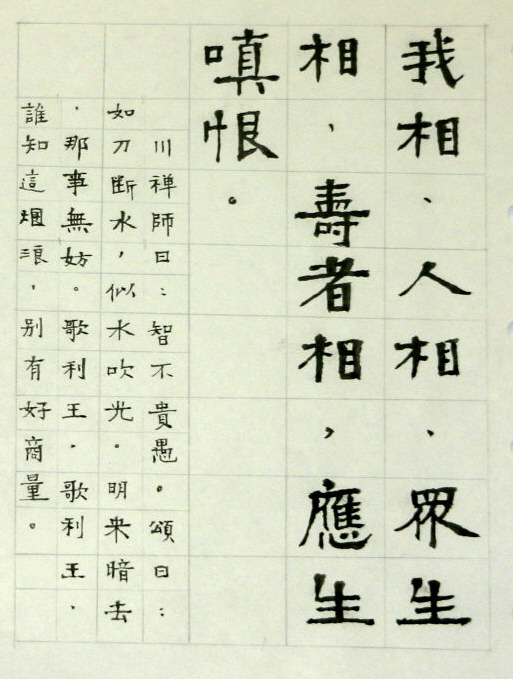 我相、人相、眾生
相、壽者相，應生
嗔恨。
川禪師曰：智不貴愚。頌曰：
如刀斷水，似水吹光。明来暗去
，那事無妨。歌利王．歌利王、
誰知這烟浪，别有好商量。